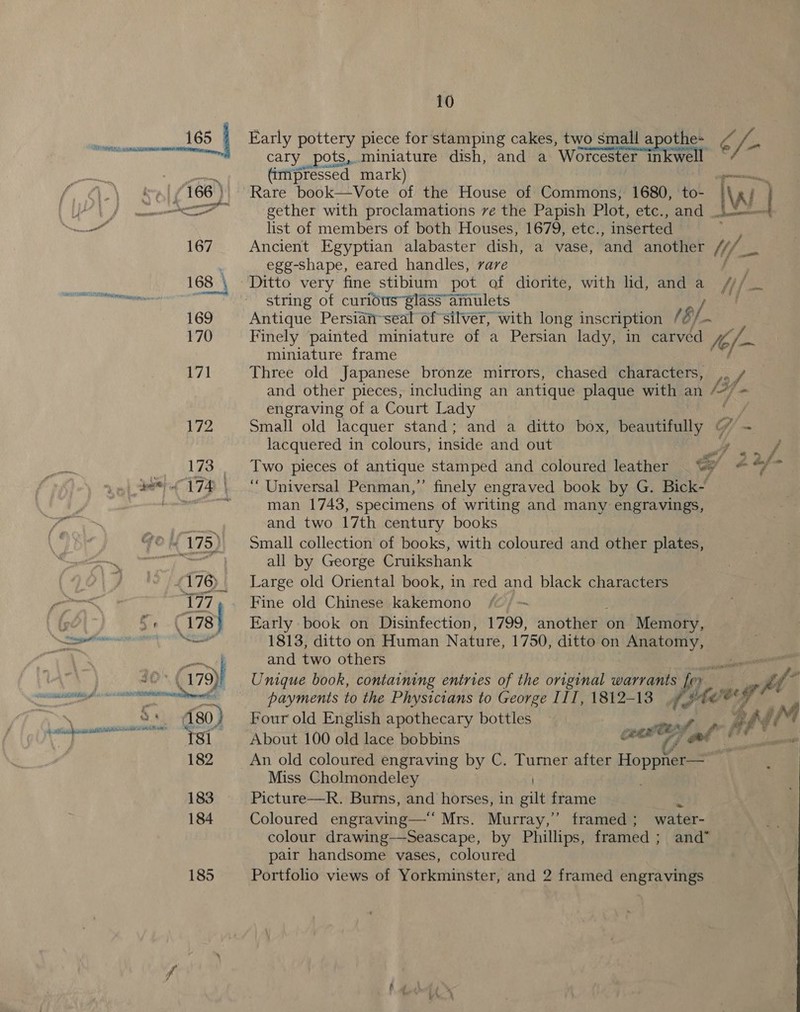 10
165 Early pottery piece for stamping cakes, two small apothe- 6/-
cary pots, miniature dish, and a Worcester inkwell
(impressed mark)
166 Rare book—Vote of the House of Commons, 1680, to- W
gether with proclamations re the Papish Plot, etc., and
list of members of both Houses, 1679, etc., inserted
167 Ancient Egyptian alabaster dish, a vase, and another
egg-shape, eared handles, rare
168 Ditto very fine stibium pot of diorite, with lid, and a
string of curious glass amulets
169 Antique Persian seal of silver, with long inscription
170 Finely painted miniature of a Persian lady, in carved
miniature frame
171 Three old Japanese bronze mirrors, chased characters,
and other pieces, including an antique plaque with an
engraving of a Court Lady
172 Small old lacquer stand; and a ditto box, beautifully
lacquered in colours, inside and out
173 Two pieces of antique stamped and coloured leather
174 “Universal Penman,” finely engraved book by G. Bick-
man 1743, specimens of writing and many engravings,
and two 17th century books
175 Small collection of books, with coloured and other plates,
all by George Cruikshank
176 Large old Oriental book, in red and black characters
177 Fine old Chinese kakemono
178 Early book on Disinfection, 1799, another on Memory,
1813, ditto on Human Nature, 1750, ditto on Anatomy,
and two others
179 Unique book, containing entries of the original warrants for
payments to the Physicians to George III, 1812-13
180 Four old English apothecary bottles
181 About 100 old lace bobbins
182 An old coloured engraving by C. Turner after Hoppner—
Miss Cholmondeley
183 Picture—R. Burns, and horses, in gilt frame
184 Coloured engraving—“Mrs. Murray,” framed; water-
colour drawing—Seascape, by Phillips, framed; and
pair handsome vases, coloured
185 Portfolio views of Yorkminster, and 2 framed engravings